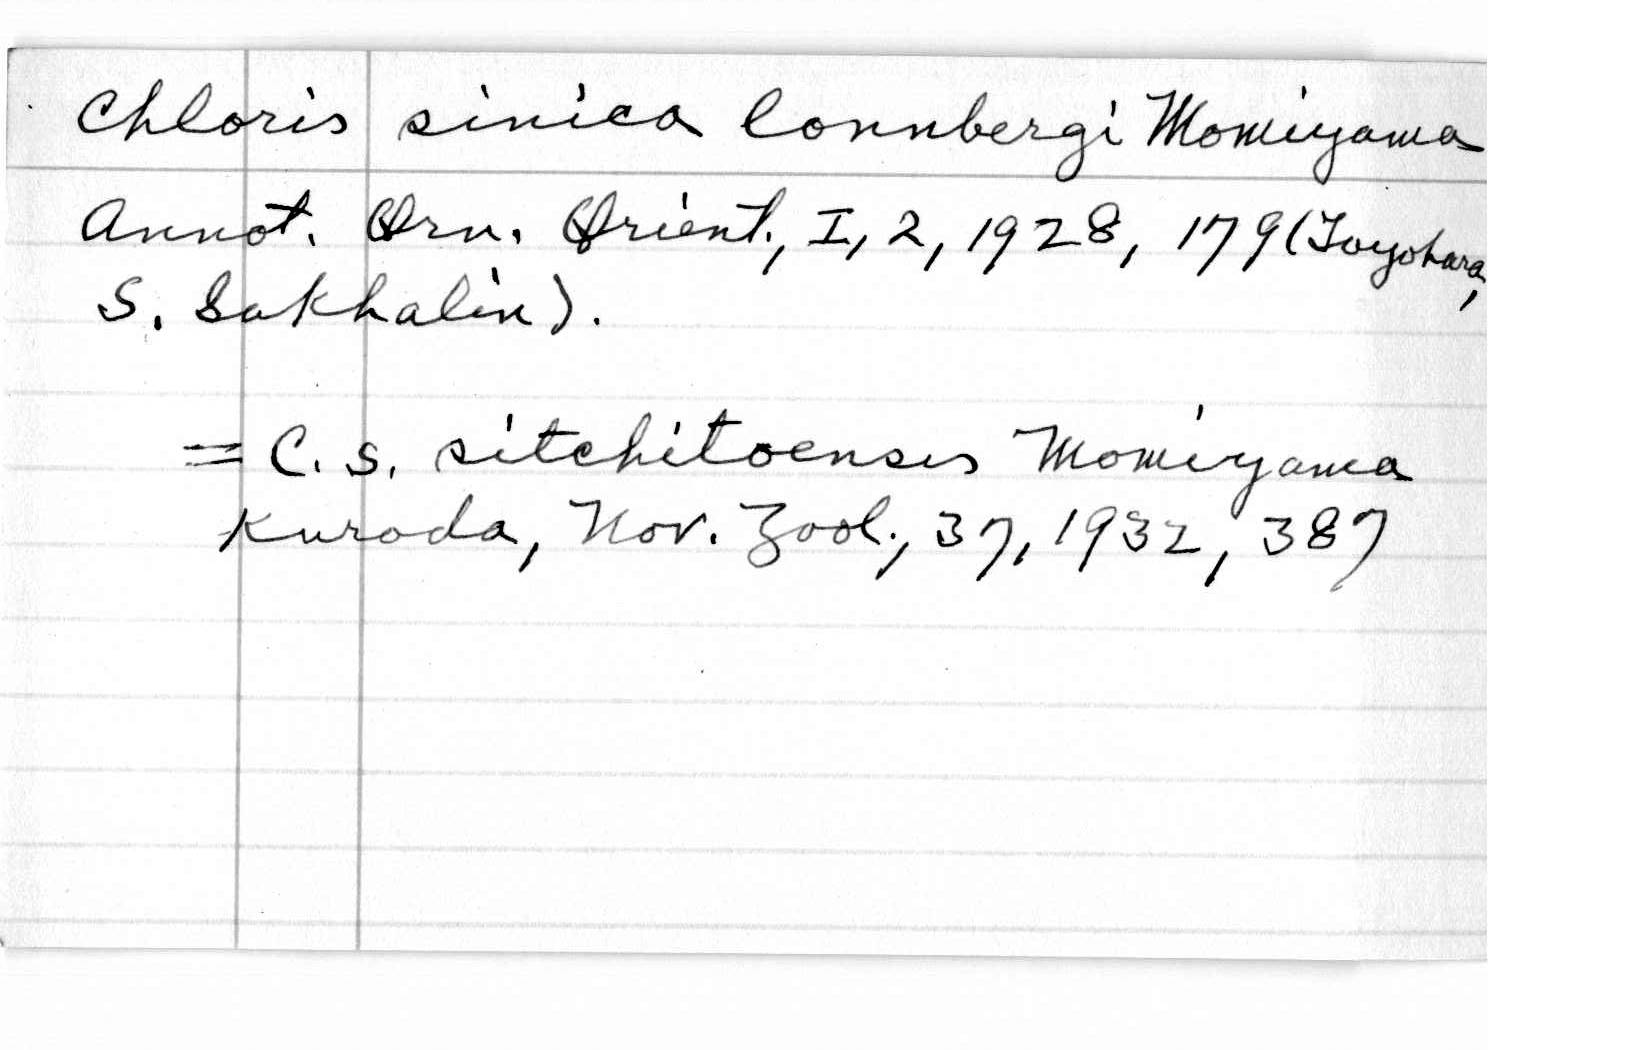 Chloris sinica lonnbergi Momiyama
Annot. Orn. Orient., I, 2, 1928, 179 (Toyohara,
S. Sakhalin).
= C. s. sitchitoensis Momiyama
Kuroda, Nov. Zool., 37, 1932, 387